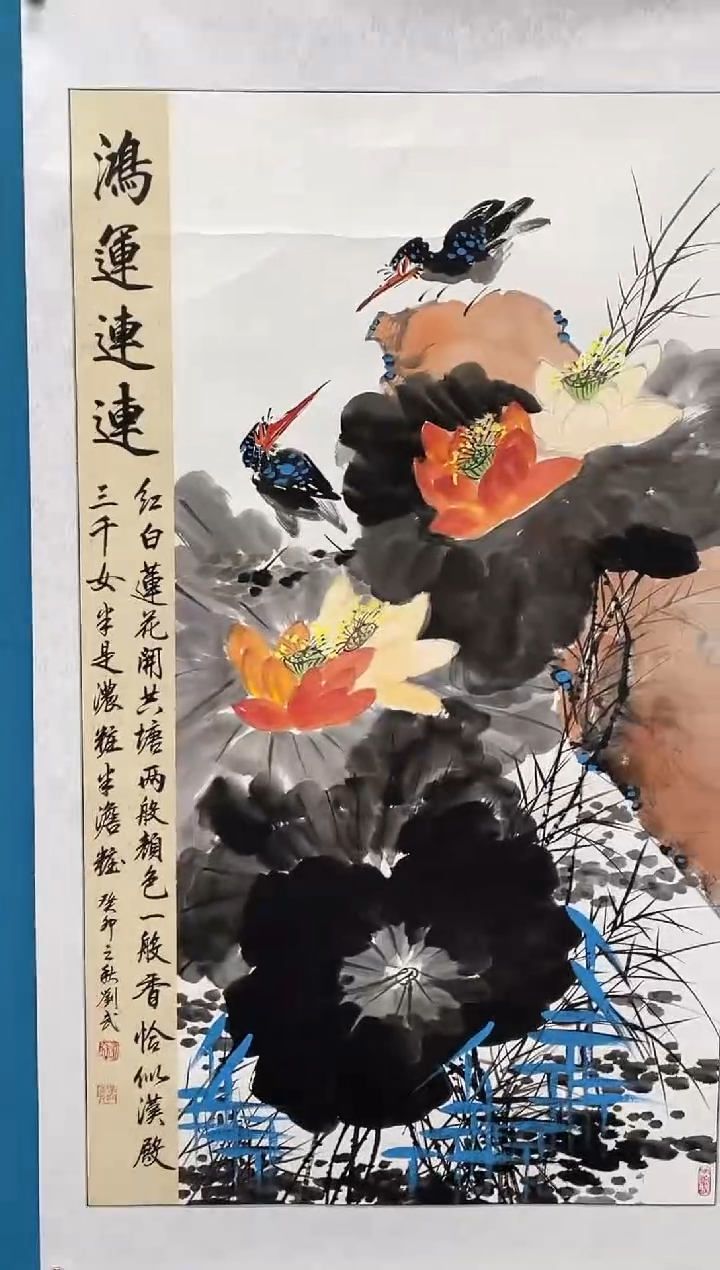 鴻運連連
紅白蓮花開共塘兩般顏色一般香恰似漢殿
三千女半是濃粧半澹粧
癸卯之秋劉武